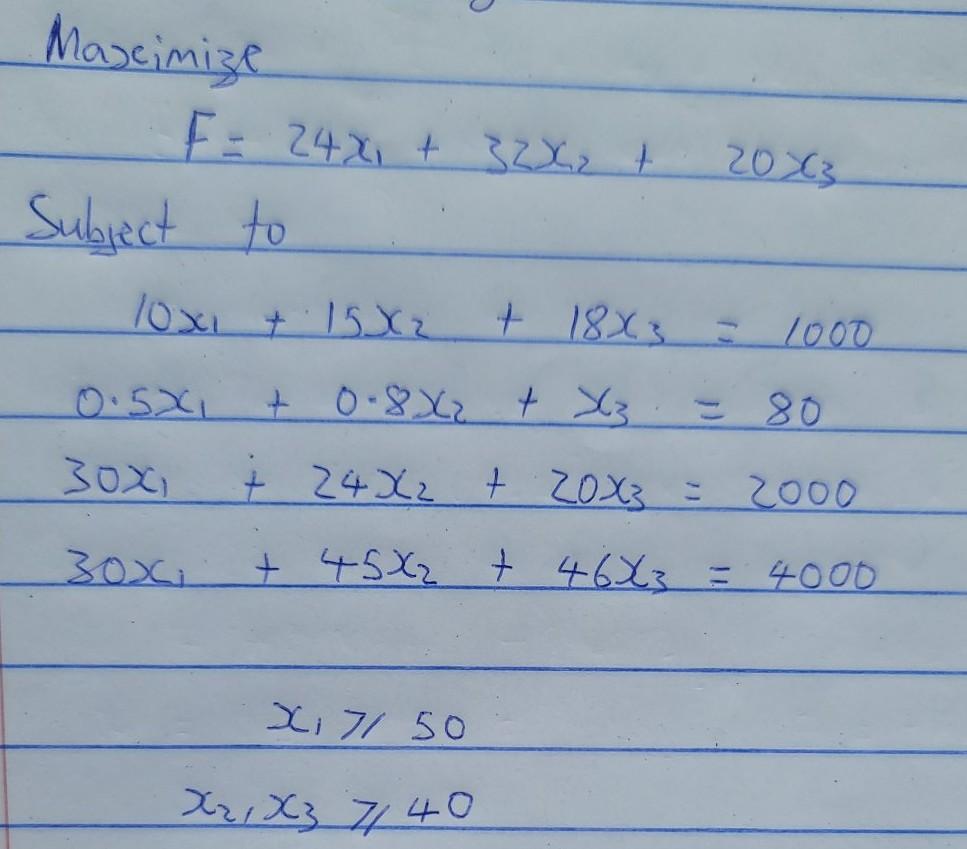 Maximize
F = 24x₁ + 32x₂ + 20x₃
Subject to
10x₁ + 15x₂ + 18x₃ = 1000
0.5x₁ + 0.8x₂ + x₃ = 80
30x₁ + 24x₂ + 20x₃ = 2000
30x₁ + 45x₂ + 46x₃ = 4000
x₁ ≥ 50
x₂, x₃ ≥ 40